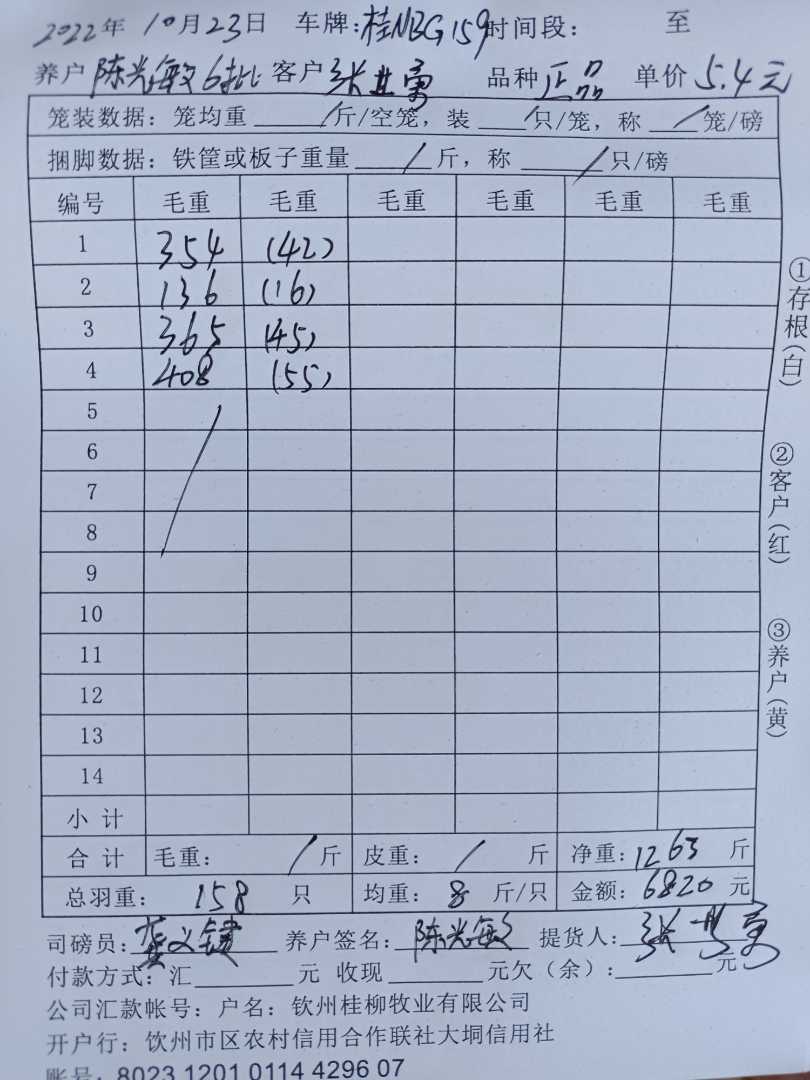 2022年 10月23日 车牌:桂NBG159 时间段: 至
养户 陈光敏6批 客户 张世勇 品种 正品 单价 5.4元
笼装数据: 笼均重 / 斤/空笼, 装 / 只/笼, 称 / 笼/磅
捆脚数据: 铁筐或板子重量 / 斤, 称 / 只/磅
编号 毛重 毛重 毛重 毛重 毛重 毛重
1 354 (42)
2 136 (16)
3 365 (45)
4 408 (55)
5
6
7
8
9
10
11
12
13
14
小计
合计 毛重: / 斤 皮重: / 斤 净重: 1263 斤
总羽重: 158 只 均重: 8 斤/只 金额: 6820 元
司磅员: 养户签名: 陈光敏 提货人: 张世勇
付款方式: 汇 元 收现 元欠(余): 元
公司汇款帐号: 户名: 钦州桂柳牧业有限公司
开户行: 饮州市区农村信用合作联社大垌信用社
账号: 8023 1201 0114 4296 07
①存根(白)
②客户(红)
③养户(黄)